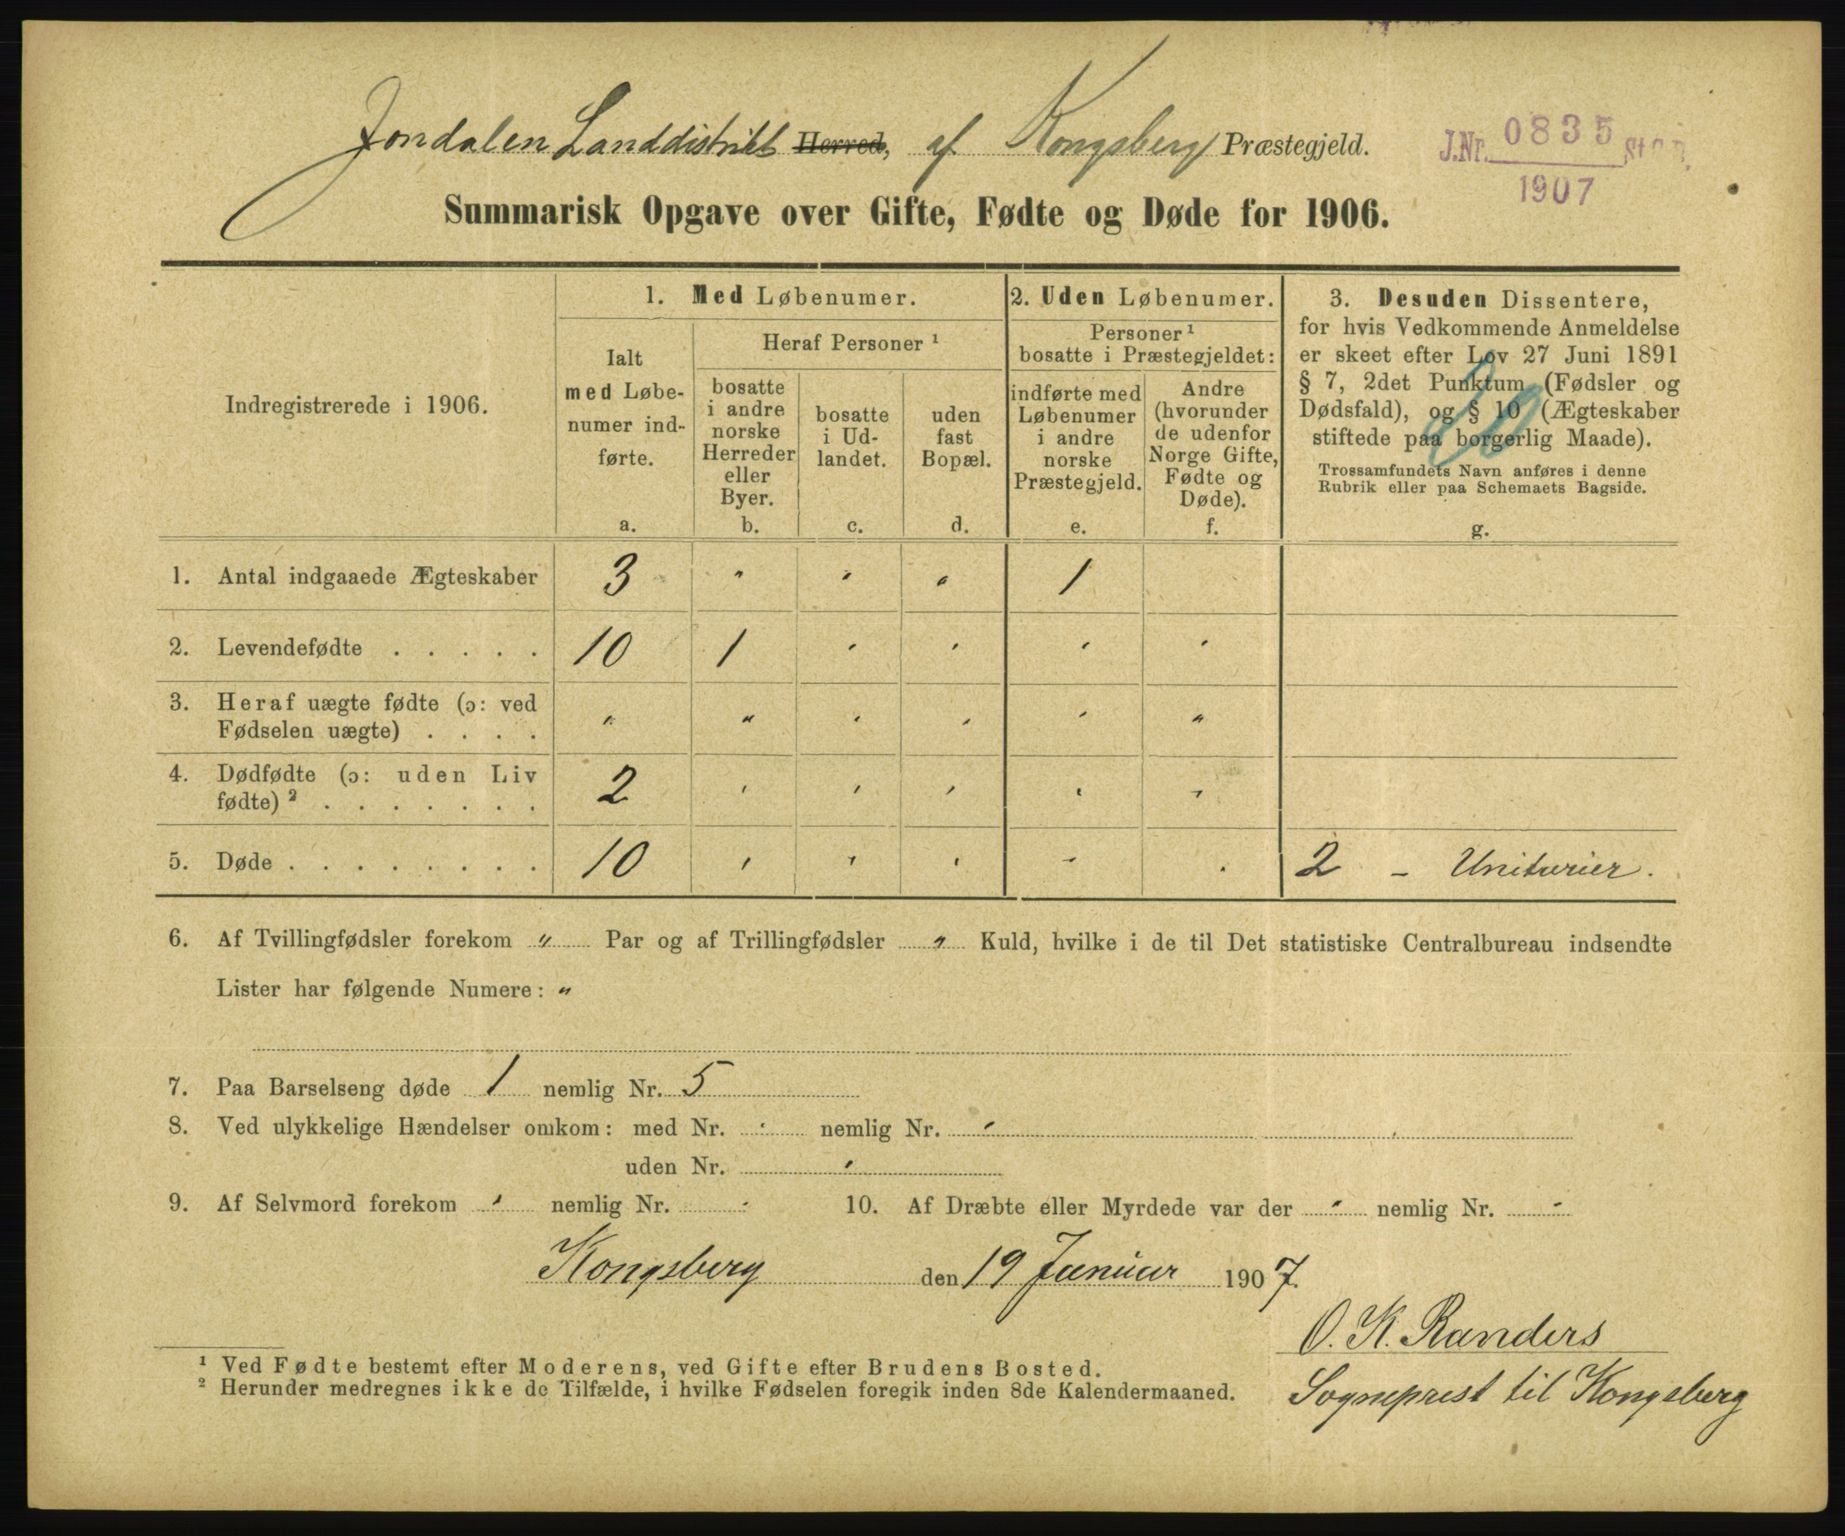 Jondalen Landdistrikt Herred, af Kongsberg Præstegjeld.
J.Nr. 0835 St.C.B.
1907
Summarisk Opgave over Gifte, Fødte og Døde for 1906.
Indregistrerede i 1906.
1. Med Løbenumer.
Ialt
med Løbe-
numer ind-
førte.
a.
Heraf Personer ¹
bosatte
i andre
norske
Herreder
eller
Byer.
b.
bosatte
i Ud-
landet.
c.
uden
fast
Bopæl.
d.
2. Uden Løbenumer.
Personer ¹
bosatte i Præstegjeldet:
indførte med
Løbenumer
i andre
norske
Præstegjeld.
e.
Andre
(hvorunder
de udenfor
Norge Gifte,
Fødte og
Døde).
f.
3. Desuden Dissentere,
for hvis Vedkommende Anmeldelse
er skeet efter Lov 27 Juni 1891
§ 7, 2det Punktum (Fødsler og
Dødsfald), og § 10 (Ægteskaber
stiftede paa borgerlig Maade).
Trossamfundets Navn anføres i denne
Rubrik eller paa Schemaets Bagside.
g.
1. Antal indgaaede Ægteskaber 3 " " " 1
2. Levendefødte . . . . . 10 1 " " " "
3. Heraf uægte fødte (ɔ: ved
Fødselen uægte) . . . . " " " " " "
4. Dødfødte (ɔ: uden Liv
fødte) ² . . . . . . . 2 " " " " "
5. Døde . . . . . . . . 10 " " " " " 2 – Unitarier.
6. Af Tvillingfødsler forekom " Par og af Trillingfødsler " Kuld, hvilke i de til Det statistiske Centralbureau indsendte
Lister har følgende Numere: "
7. Paa Barselseng døde 1 nemlig Nr. 5
8. Ved ulykkelige Hændelser omkom: med Nr. " nemlig Nr. "
uden Nr. "
9. Af Selvmord forekom " nemlig Nr. " 10. Af Dræbte eller Myrdede var der " nemlig Nr. "
Kongsberg den 19 Januar 1907.
O. K. Randers
Sogneprest til Kongsberg
¹ Ved Fødte bestemt efter Moderens, ved Gifte efter Brudens Bosted.
² Herunder medregnes ikke de Tilfælde, i hvilke Fødselen foregik inden 8de Kalendermaaned.